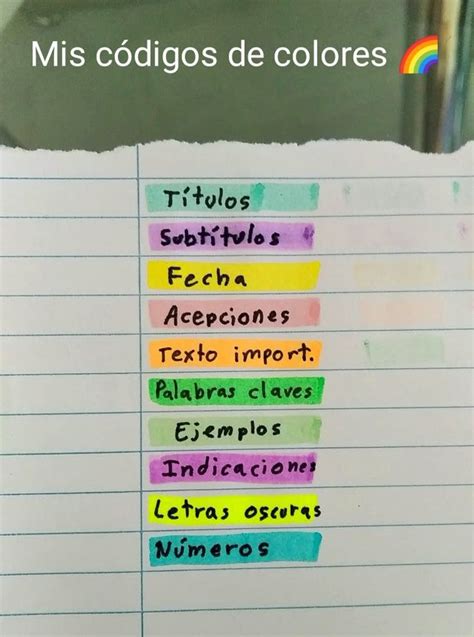 Mis códigos de colores 🌈
Títulos
Subtítulos
Fecha
Acepciones
Texto import.
Palabras claves
Ejemplos
Indicaciones
Letras oscuras
Números